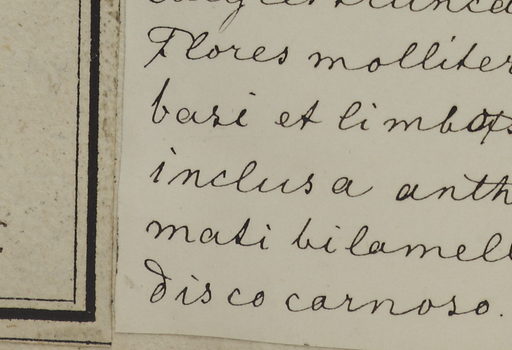 Flores molliter
basi et limbo
inclusa anth
mati bilamell
disco carnoso.